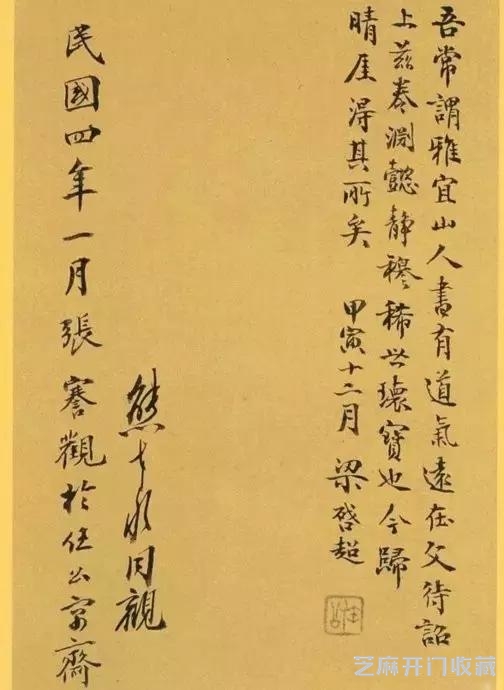 吾常謂雅宜山人書有道氣遠在文待詔
上茲卷淵懿靜穆稀世瓌寶也今歸
晴厓淂其所矣 甲寅十二月 梁啓超
熊 同觀
民國四年一月張謇觀於任公寓齋
芝麻开门收藏